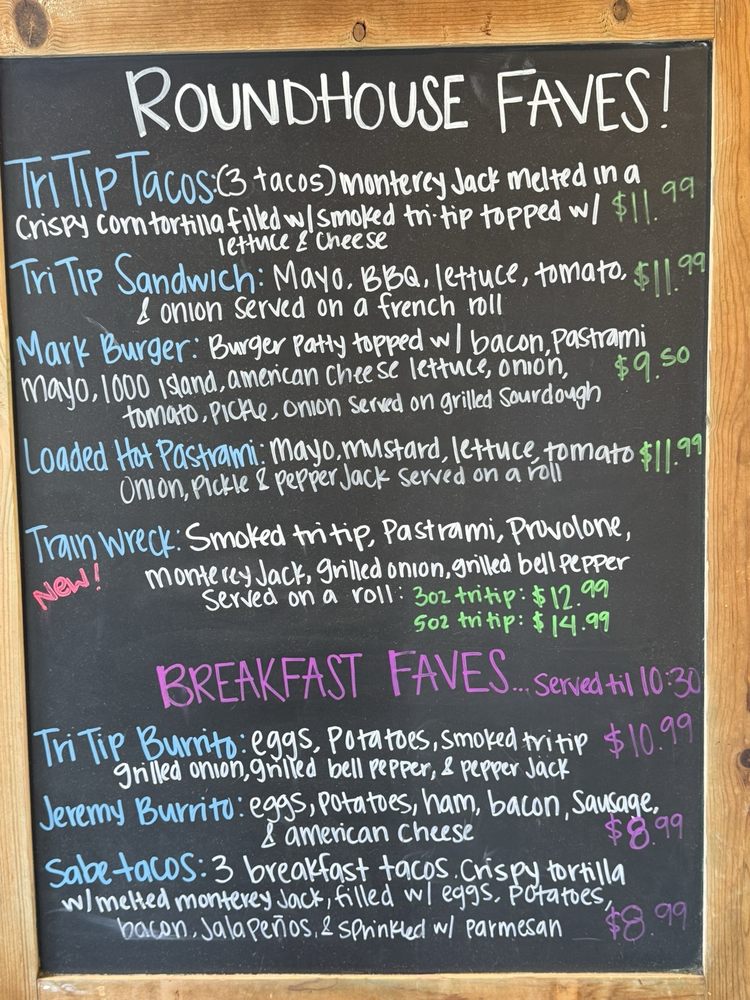 ROUNDHOUSE FAVES!
Tri Tip Tacos: (3 tacos) monterey Jack melted in a
crispy corn tortilla filled w/ smoked tri-tip topped w/ $11.99
lettuce & cheese
Tri Tip Sandwich: Mayo, BBQ, lettuce, tomato, $11.99
& onion served on a french roll
Mark Burger: Burger Patty topped w/ bacon, Pastrami
mayo, 1000 island, american cheese lettuce, onion, $9.50
tomato, pickle, onion served on grilled sourdough
Loaded Hot Pastrami: mayo, mustard, lettuce, tomato $11.99
onion, Pickle & Pepper Jack served on a roll
Train wreck: Smoked tri tip, Pastrami, Provolone,
New! monterey Jack, grilled onion, grilled bell pepper
Served on a roll: 3oz tri tip: $12.99
5oz tri tip: $14.99
BREAKFAST FAVES... Served til 10:30
Tri Tip Burrito: eggs, Potatoes, smoked tri tip $10.99
grilled onion, grilled bell pepper, & pepper Jack
Jeremy Burrito: eggs, potatoes, ham, bacon, Sausage,
& american cheese $8.99
Sabe-tacos: 3 breakfast tacos. Crispy tortilla
w/ melted monterey Jack, filled w/ eggs, potatoes,
bacon, Jalapeños, & sprinkled w/ parmesan $8.99